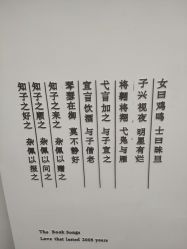 女曰鸡鸣 士曰昧旦
子兴视夜 明星有烂
将翱将翔 弋凫与雁
弋言加之 与子宜之
宜言饮酒 与子偕老
琴瑟在御 莫不静好
知子之来之 杂佩以赠之
知子之顺之 杂佩以问之
知子之好之 杂佩以报之
The Book Songs
Love that lasted 2005 years